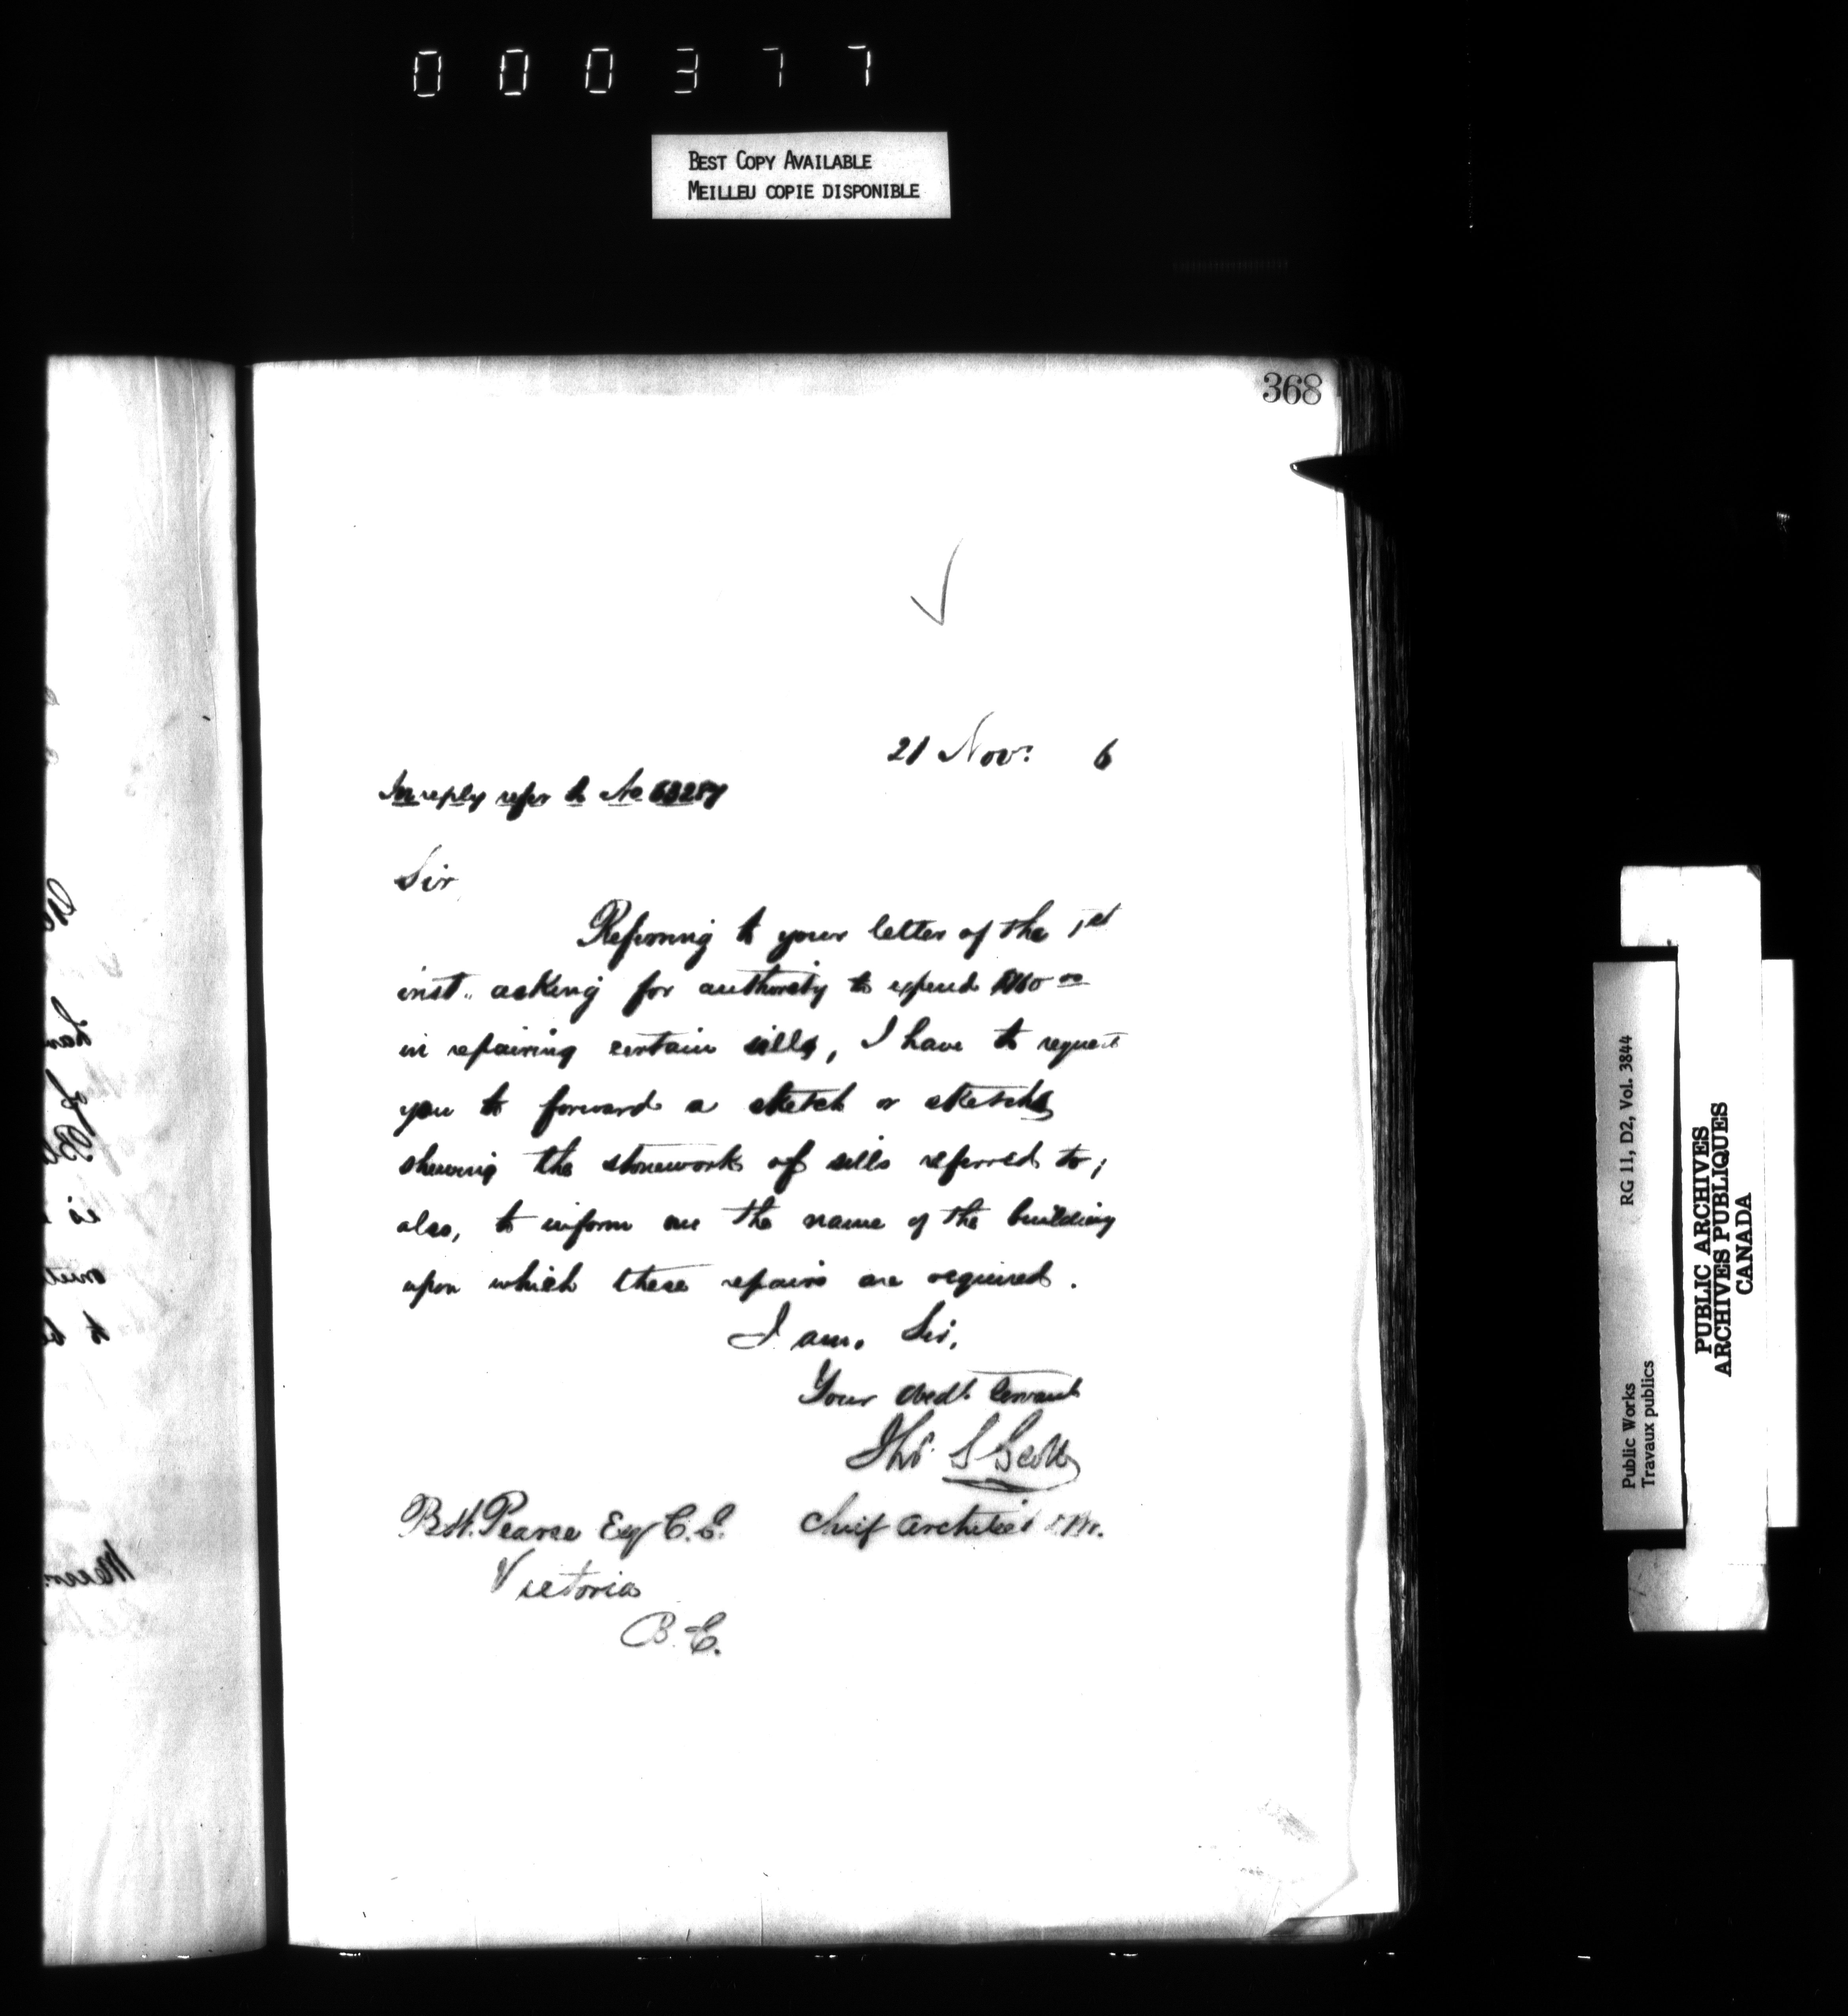 000377
BEST COPY AVAILABLE
MEILLEU COPIE DISPONIBLE
368
21 Nov: 6
In reply refer to No
Sir
Referring to your letter of the 1st
inst. asking for authority to expend
in repairing certain sills, I have to request
you to forward a sketch or sketchs
shewing the stonework of sills referred to;
also, to inform me the name of the building
upon which these repairs are required.
I am. Sir.
Your obedt. Servant
Thos. S Scott
Chief Architect
B.W. Pearse Esq C.E.
Victoria
B.C.
Public Works RG 11, D2, Vol. 3844
Travaux publics
PUBLIC ARCHIVES
ARCHIVES PUBLIQUES
CANADA